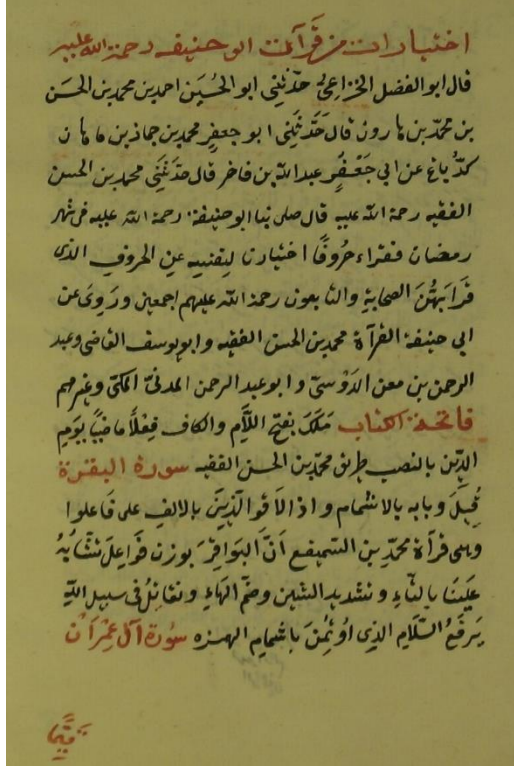 اختيارات من قرآءت ابو حنيفه رحمة الله عليه
قال ابو الفضل الخزاعيُّ حدّثني ابو الحُسَين احمد بن محمد بن الحسَن
بن محمّد بن هارون قال حَدَّثَنِى ابو جعفرٍ محمد بن حماذ بن ماهان
عن ابي جَعْفَرٍ عبد الله بن فاخر قال حدّثَنى محمد بن الحسن
الفقيه رحمة الله عليه قال صلى بنا ابو حنيفة رحمة الله عليه فى شهر
رمضان فقراء حُروفًا اختيارنا لنفسه عن الحروف الذى
قرا بهنَّ الصحابةِ والتابعون رحمة الله عليهم اجمعين ورَوىَ عن
ابي حنيفة القرآة محمد بن الحسن الفقيه وابو يوسف القاضى وعبد
الرحمن بن معن الدَوْسىّ وابو عبد الرحمن المدنىّ المكّى وغيرهم
فاتحة الكتاب مَلَكَ بفتح اللاّمِ والكاف فِعْلاً ماضيًا يَومَ
الدّين بالنصب طريق محمّد بن الحسن الفقيه سورة البقرة
قُيلَ وبابه بالاشمام واذا لاقوا الّذِينَ بالالفِ على فَاعلوا
وهى قرآة محمّد بن السَّمَيفع انَّ البَوَاقِرَ بوزن فَوَاعِلَ تشَّابَهُ
عَلَينَا بالتّاءِ وتشديد الشين وضمّ الهاءِ ونقاتِلُ فى سبيل اللهِ
يَرفَعُ السَّلامِ الذى اوُتُمِنَ باشمامِ الهمزه سُورَة آل عِمْرَان
قيّمًا